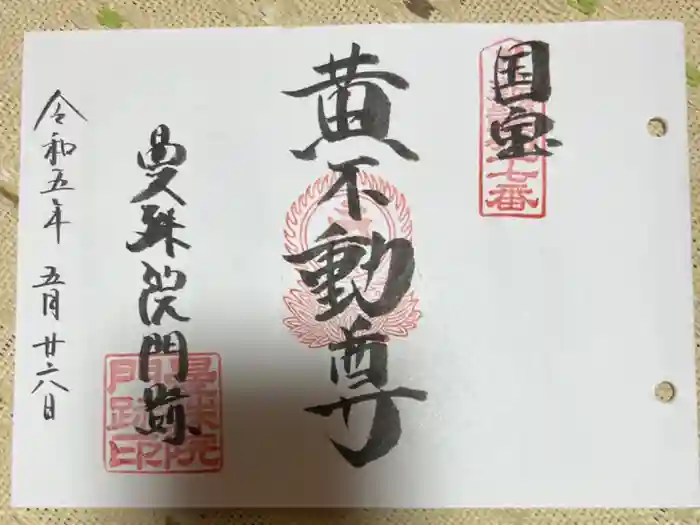 国宝
七番
黄不動尊
曼殊院門跡
曼殊院
門跡印
令和五年 五月廿六日